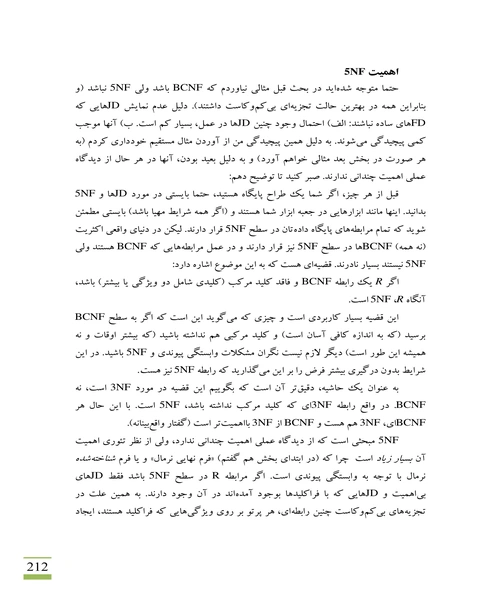 اهمیت 5NF
حتما متوجه شده‌اید در بحث قبل مثالی نیاوردم که BCNF باشد ولی 5NF نباشد (و
بنابراین همه در بهترین حالت تجزیه‌ای بی‌کم‌وکاست داشتند). دلیل عدم نمایش JDهایی که
FDهای ساده نباشند: الف) احتمال وجود چنین JDها در عمل، بسیار کم است. ب) آنها موجب
کمی پیچیدگی می‌شوند. به دلیل همین پیچیدگی من از آوردن مثال مستقیم خودداری کردم (به
هر صورت در بخش بعد مثالی خواهم آورد) و به دلیل بعید بودن، آنها در هر حال از دیدگاه
عملی اهمیت چندانی ندارند. صبر کنید تا توضیح دهم:
قبل از هر چیز، اگر شما یک طراح پایگاه هستید، حتما بایستی در مورد JDها و 5NF
بدانید. اینها مانند ابزارهایی در جعبه ابزار شما هستند و (اگر همه شرایط مهیا باشد) بایستی مطمئن
شوید که تمام مرابطه‌های پایگاه داده‌تان در سطح 5NF قرار دارند. لیکن در دنیای واقعی اکثریت
(نه همه) BCNFها در سطح 5NF نیز قرار دارند و در عمل مرابطه‌هایی که BCNF هستند ولی
5NF نیستند بسیار نادرند. قضیه‌ای هست که به این موضوع اشاره دارد:
اگر R یک رابطه BCNF و فاقد کلید مرکب (کلیدی شامل دو ویژگی یا بیشتر) باشد،
آنگاه R، 5NF است.
این قضیه بسیار کاربردی است و چیزی که می‌گوید این است که اگر به سطح BCNF
برسید (که به اندازه کافی آسان است) و کلید مرکبی هم نداشته باشید (که بیشتر اوقات و نه
همیشه این طور است) دیگر لازم نیست نگران مشکلات وابستگی پیوندی و 5NF باشید. در این
شرایط بدون درگیری بیشتر فرض را بر این می‌گذارید که رابطه 5NF نیز هست.
به عنوان یک حاشیه، دقیق‌تر آن است که بگوییم این قضیه در مورد 3NF است، نه
BCNF. در واقع رابطه 3NFای که کلید مرکب نداشته باشد، 5NF است. با این حال هر
BCNFای، 3NF هم هست و BCNF از 3NF بااهمیت‌تر است (گفتار واقع‌بینانه).
5NF مبحثی است که از دیدگاه عملی اهمیت چندانی ندارد، ولی از نظر تئوری اهمیت
آن بسیار زیاد است چرا که (در ابتدای بخش هم گفتم) «فرم نهایی نرمال» و یا فرم شناخته‌شده
نرمال با توجه به وابستگی پیوندی است. اگر مرابطه R در سطح 5NF باشد فقط JDهای
بی‌اهمیت و JDهایی که با فراکلیدها بوجود آمده‌اند در آن وجود دارند. به همین علت در
تجزیه‌های بی‌کم‌وکاست چنین رابطه‌ای، هر پرتو بر روی ویژگی‌هایی که فراکلید هستند، ایجاد
212